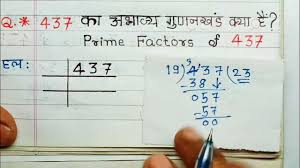 Q.* 437 का अभाज्य गुणनखंड क्या है?
Prime Factors of 437
हल:
437
19) 437 (23
38 ↓
057
57
00